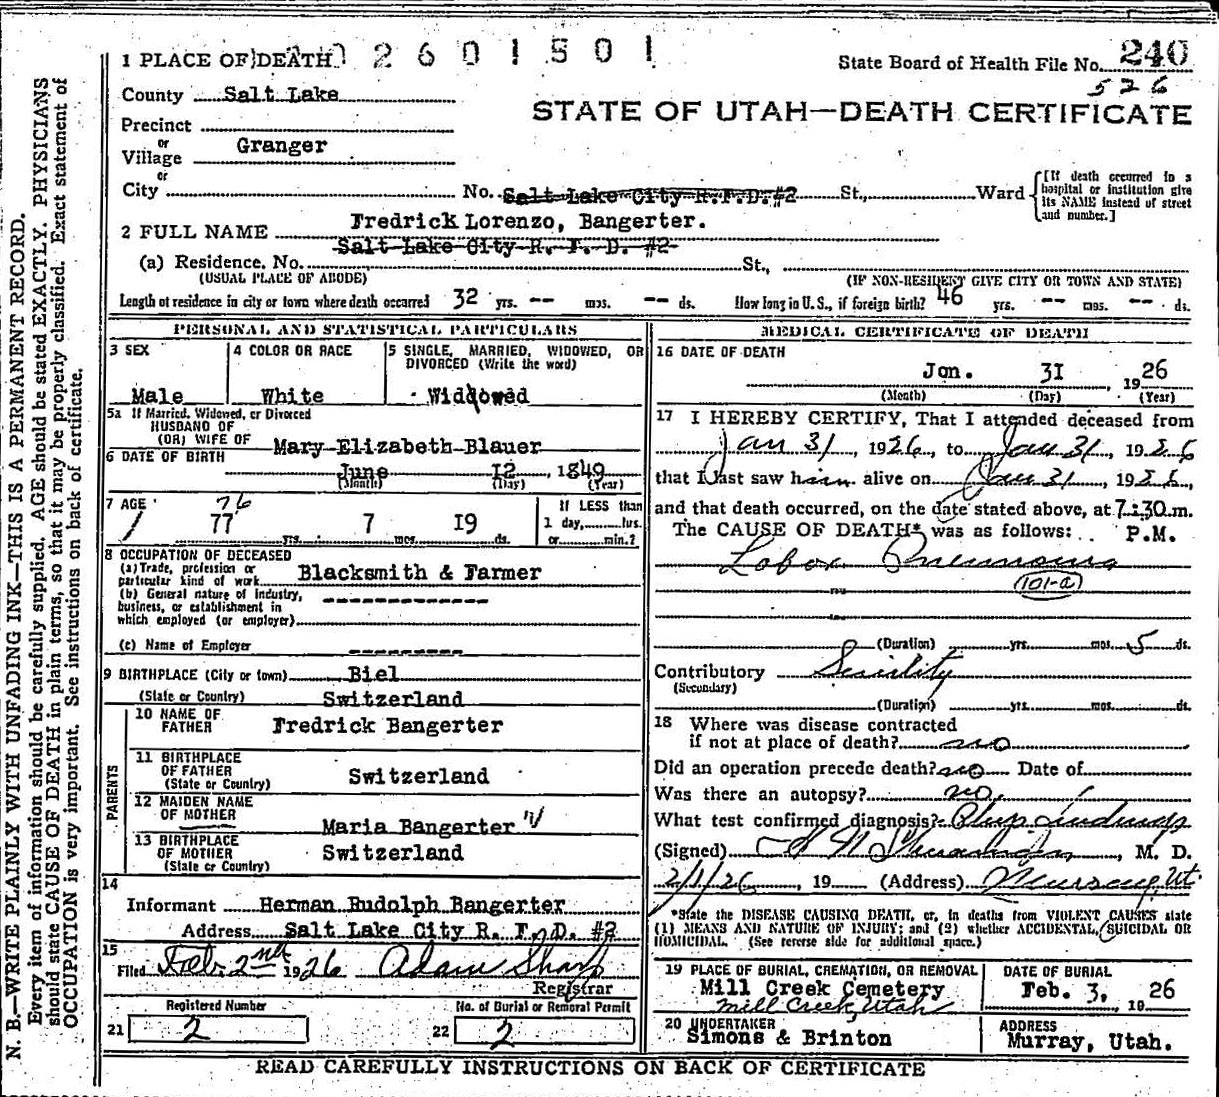 N. B.—WRITE PLAINLY WITH UNFADING INK—THIS IS A PERMANENT RECORD.
Every item of information should be carefully supplied. AGE should be stated EXACTLY. PHYSICIANS
should state CAUSE OF DEATH in plain terms, so that it may be properly classified. Exact statement of
OCCUPATION is very important. See instructions on back of certificate.
1 PLACE OF DEATH 2601501
State Board of Health File No. 240
526
County Salt Lake
STATE OF UTAH—DEATH CERTIFICATE
Precinct
or
Village Granger
or
City No. Salt Lake City R.F.D.#2 St., Ward
[If death occurred in a
hospital or institution give
its NAME instead of street
and number.]
2 FULL NAME Fredrick Lorenzo, Bangerter.
Salt Lake City R. F. D. #2
(a) Residence. No. St.,
(USUAL PLACE OF ABODE) (IF NON-RESIDENT GIVE CITY OR TOWN AND STATE)
Length of residence in city or town where death occurred 32 yrs. -- mos. -- ds. How long in U.S., if foreign birth? 46 yrs. -- mos. -- ds.
PERSONAL AND STATISTICAL PARTICULARS
3 SEX
Male
4 COLOR OR RACE
White
5 SINGLE, MARRIED, WIDOWED, OR
DIVORCED (Write the word)
Widdowed
5a If Married, Widowed, or Divorced
HUSBAND OF
(OR) WIFE OF Mary Elizabeth Blauer
6 DATE OF BIRTH
June 12, 1849
(Month) (Day) (Year)
7 AGE 76
77 yrs. 7 mos. 19 ds.
If LESS than
1 day, hrs.
or min.?
8 OCCUPATION OF DECEASED
(a) Trade, profession or
particular kind of work Blacksmith & Farmer
(b) General nature of industry,
business, or establishment in
which employed (or employer)
(c) Name of Employer
9 BIRTHPLACE (City or town) Biel
(State or Country) Switzerland
PARENTS
10 NAME OF
FATHER Fredrick Bangerter
11 BIRTHPLACE
OF FATHER
(State or Country) Switzerland
12 MAIDEN NAME
OF MOTHER Maria Bangerter
13 BIRTHPLACE
OF MOTHER Switzerland
(State or Country)
14
Informant Herman Rudolph Bangerter
Address Salt Lake City R. F. D. #2
15
Filed Feb. 2nd 1926 Adam Sharp
Registrar
Registered Number
21 2
No. of Burial or Removal Permit
22 2
MEDICAL CERTIFICATE OF DEATH
16 DATE OF DEATH
Jan. 31, 1926
(Month) (Day) (Year)
17 I HEREBY CERTIFY, That I attended deceased from
Jan 31, 1926, to Jan 31, 1926
that I last saw him alive on Jan 31, 1926,
and that death occurred, on the date stated above, at 7:30 m.
The CAUSE OF DEATH* was as follows: P.M.
Lobar Pneumonia
(101-a)
(Duration) yrs. mos. 5 ds.
Contributory Senility
(Secondary)
(Duration) yrs. mos. ds.
18 Where was disease contracted
if not at place of death? no
Did an operation precede death? no Date of
Was there an autopsy? no
What test confirmed diagnosis? Phys. Findings
(Signed) , M. D.
2/1/26, 19 (Address) Murray, Ut.
*State the DISEASE CAUSING DEATH, or, in deaths from VIOLENT CAUSES state
(1) MEANS AND NATURE OF INJURY; and (2) whether ACCIDENTAL, SUICIDAL OR
HOMICIDAL. (See reverse side for additional space.)
19 PLACE OF BURIAL, CREMATION, OR REMOVAL
Mill Creek Cemetery
Mill Creek, Utah
DATE OF BURIAL
Feb. 3, 1926
20 UNDERTAKER
Simons & Brinton
ADDRESS
Murray, Utah.
READ CAREFULLY INSTRUCTIONS ON BACK OF CERTIFICATE